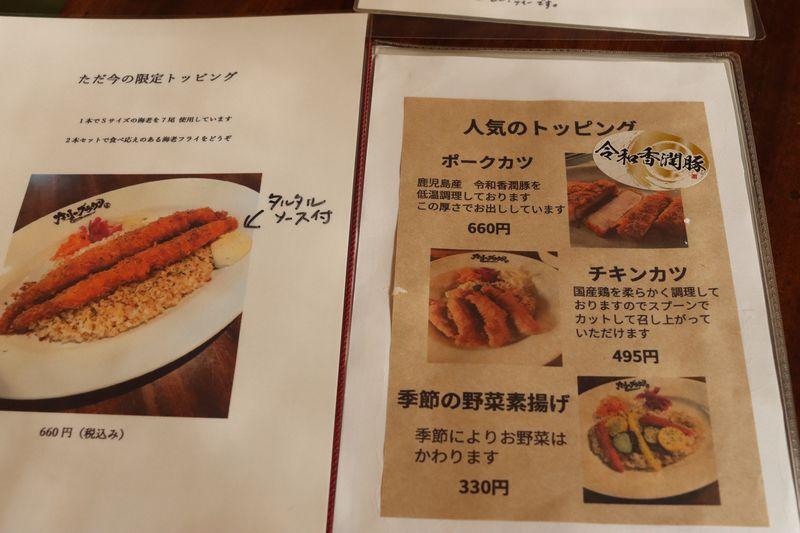 ただ今の限定トッピング
1本でSサイズの海老を7尾 使用しています
2本セットで食べ応えのある海老フライをどうぞ
タルタル
ソース付
660円（税込み）
人気のトッピング
令和香潤豚
ポークカツ
鹿児島産　令和香潤豚を
低温調理しております
この厚さでお出ししています
660円
チキンカツ
国産鶏を柔らかく調理して
おりますのでスプーンで
カットして召し上がって
いただけます
495円
季節の野菜素揚げ
季節によりお野菜は
かわります
330円